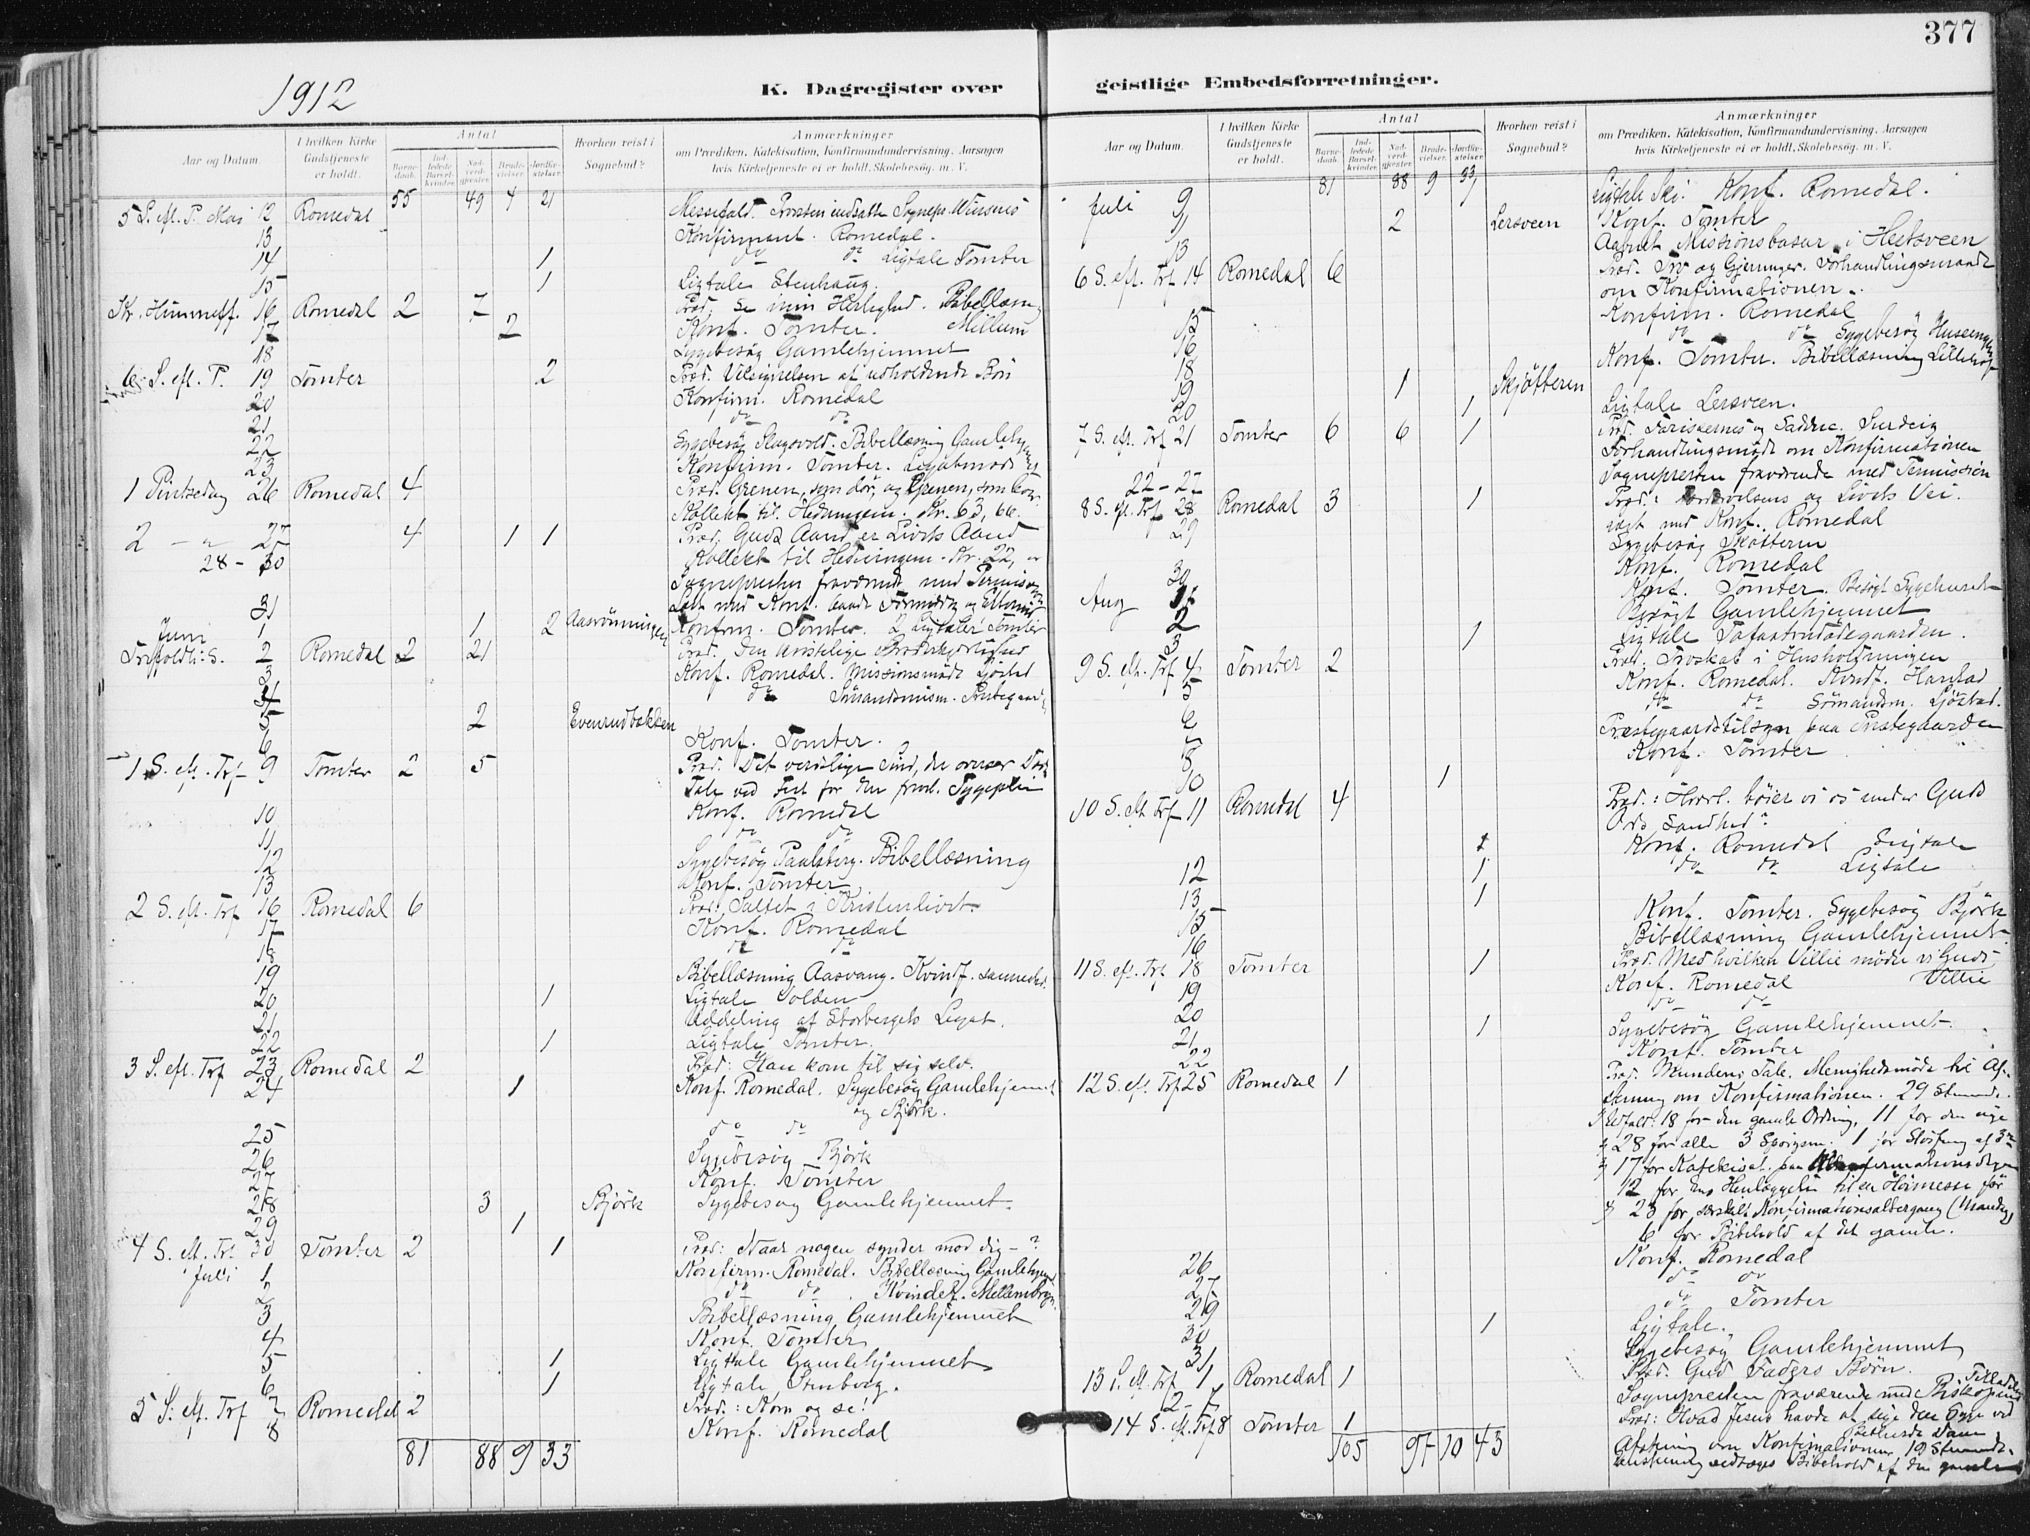 377
1912
K. Dagregister over geistlige Embedsforretninger.
Aar og Datum
I hvilken Kirke Gudstjeneste er holdt.
Antal
Barnedaab.
Indledede Barselkvinder.
Nadverdgjester.
Brudevielser.
Jordfæstelser.
Hvorhen reist i Sognebud?
Anmærkninger
om Prædiken, Katekisation, Konfirmandundervisning, Aarsagen
hvis Kirketjeneste ei er holdt, Skolebesøg, m. V.
55 49 7 21
5 S. eft. P. Mai 12 Romedal
13 Konfirmant. Romedal.
14 do do Ligtale Tomter
1
15 1 Ligtale Stenhaug.
Kr. Himmelf. 16 Romedal 2 7 Præd. Se min Herlighed. Bibellæsn.
17 2 Konf. Tomter.
18 Sygebesøg Gamlehjemmet
6 S. eft. P. 19 Tomter 2 Præd. Velsignelsen af udholdende Bøn
20 Konfirm. Romedal
21 do do
22 Sygebesøg Bibellæsning
23 Konfirm. Tomter.
1 Pintsedag 26 Romedal 4 Præd. Grenen, som dør, og Grenen, som
Kollekt til Hedningem. Kr.
2 - " - 27 4 1 1 Præd. Guds Aand er Livets Aand
Kollekt til Hedningem. Kr. 22,
28 - 30 Sognepresten fraværende med Permission
31
Juni 1 1 2 Aasrönningen Konfirm. Tomter. 2 Ligtaler Tomter
2 Romedal 2 21 Præd. Den kristelige
3 Konf. Romedal. Missionsmøde
4 do
5 2 Evenrudbakken
6 Konf. Tomter.
1 S. eft. Trf 9 Tomter 2 5 Præd. Det
Tale ved Fest for den
10 Konf. Romedal
11 do do
12 Sygebesøg Paulsberg. Bibellæsning
13 Konf. Tomter
2 S. eft. Trf 16 Romedal 6 Præd. Saltet i Kristenlivet.
17 Konf. Romedal
18 do do
19 Bibellæsning Aasvang. Kvindf. sammesteds
20 1 Ligtale
21 Uddeling af Storbergets Legat.
22 1 Ligtale Tomter.
3 S. eft. Trf 23 Romedal 2 Præd: Han kom til sig selv.
24 1 Konf. Romedal. Sygebesøg Gamlehjemmet
og Björk.
25 do do
26 Sygebesøg Björk
27 Konf. Tomter
28 3 Björk Sygebesøg Gamlehjemmet.
29 1
4 S. eft. Trf 30 Tomter 2 1 Præd: Naar nogen synder mod dig - ?
Juli 1 Konfirm. Romedal. Bibellæsning Gamlehjem
2 do do Kvindef.
3 Bibellæsning Gamlehjemmet
4 Konf. Tomter
5 1 Ligtale Gamlehjemmet
6 1 Ligtale Stenberg.
5 S. eft. Trf 7 Romedal 2 Præd.: Kom og se!
8 Konf. Romedal
81 88 9 33
Aar og Datum.
I hvilken Kirke Gudstjeneste er holdt.
Antal
Barnedaab.
Indledede Barselkvinder.
Nadverdgjester.
Brudevielser.
Jordfæstelser.
Hvorhen reist i Sognebud?
Anmærkninger
om Prædiken, Katekisation, Konfirmandundervisning, Aarsagen
hvis Kirketjeneste ei er holdt, Skolebesøg, m. V.
81 88 9 33
Juli 9 Konf. Romedal.
11 2 Lersveen Konf. Tomter
13 Aabnet Missionsbasar i
6 S. eft. Trf 14 Romedal 6 Præd. Tro og Gjerninger.
om Konfirmationen.
15 Konfirm. Romedal
16 do do Sygebesøg
18 Konf. Tomter. Bibellæsning
19 1 Skjøtteren
20 1 Ligtale Lersveen.
7 S. eft. Trf 21 Tomter 6 6 1 Præd. Farisæernes og Sadduc. Surdeig
Forhandlingsmøde om Konfirmationen
22 - 27 Sognepresten fraværende med Permission
8 S. eft. Trf 28 Romedal 3 1 Præd: og Livets Vei.
29 Konf. Romedal
Sygebesøg Skøtteren
30 Konf. Romedal
Aug 1 Konf. Tomter. Besøgt Sygehuset
2 Besøgt Gamlehjemmet
3 1 Ligtale
9 S. eft. Trf 4 Tomter 2 Præd: Troskab i Husholdningen
5 Konf. Romedal. Kvindf.
6 do do Sömandsm.
7 Præstegaardstilsyn paa Præstegaarden
8 Konf. Tomter
10 1
10 S. eft. Trf 11 Romedal 4 Præd.: Hvorl. bøier vi os under Guds
Ords Sandhed?
12 1 Konf. Romedal Ligtale
13 1 do do Ligtale
15 Konf. Tomter. Sygebesøg Björk
16 Bibellæsning Gamlehjemmet.
11 S. eft. Trf 18 Tomter 1 Præd. Med hvilken Villie møder vi Guds
Villie
19 Konf. Romedal
20 do do
21 1 Sygebesøg Gamlehjemmet.
22 Konf. Tomter
12 S. eft. Trf 25 Romedal 1 Præd. Mundens Tale. Menighedsmøde til Af-
stemning om Konfirmationen. 29 Stemmeb.
18 for den gamle Ordning, 11 for den nye
28 for alle 3 Spørgsm. 1 for Sløifning af 3die
17 for Katekisat. paa Konfirmationsdagen
12 for dens Henlæggelse til en Høimesse før
23 for særskilt Konfirmationsaltergang (Mandag)
6 for Bibehold af det gamle.
26 Konf. Romedal
27 do do
29 do Tomter
30 1 Ligtale.
31 Sygebesøg Gamlehjemmet
13 S. eft. Trf 1 Romedal 1 Præd. Gud Faders Børn.
2 - 7 Sognepresten fraværende med Biskopens
14 S. eft. Trf 8 Tomter 1 Præd: Hvad Jesus havde at sige den Syge ved
Bethesda Dam.
Afstemning om Konfirmationen 19 Stemmeb.
105 97 10 43